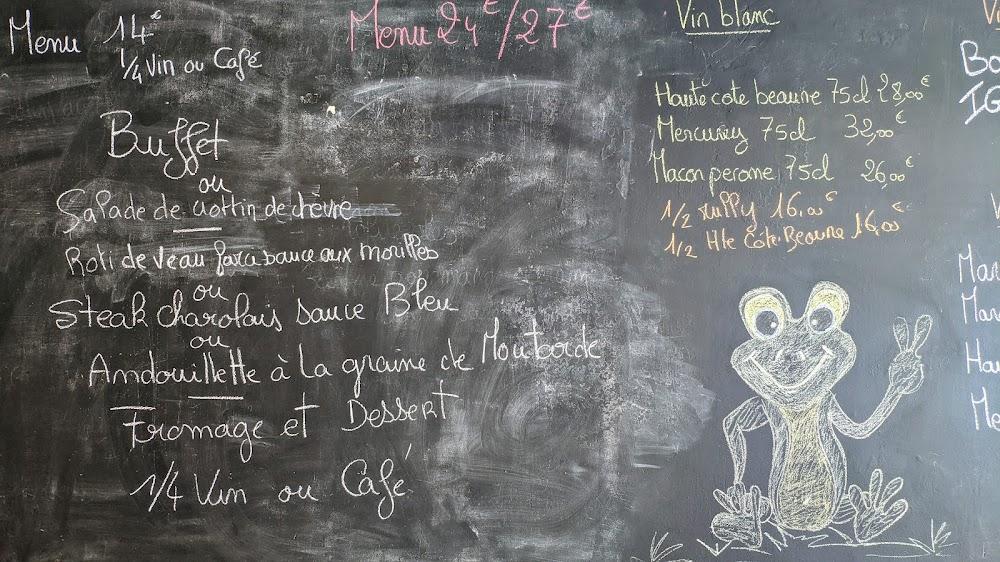 Menu 14€
1/4 Vin ou Café
Menu 24€/27€
Buffet
ou
Salade de crottin de chèvre
Roti de veau farci sauce aux morilles
ou
Steak charolais sauce Bleu
ou
Andouillette à la graine de Moutarde
Fromage et Dessert
1/4 Vin ou Café
Vin blanc
Haute cote beaune 75cl 28,00€
Mercurey 75cl 32,00€
Macon perone 75cl 26,00€
1/2 rully 16,00€
1/2 Hte Cote Beaune 16,00€
Bo
IG
Mar
Mar
Hau
Me